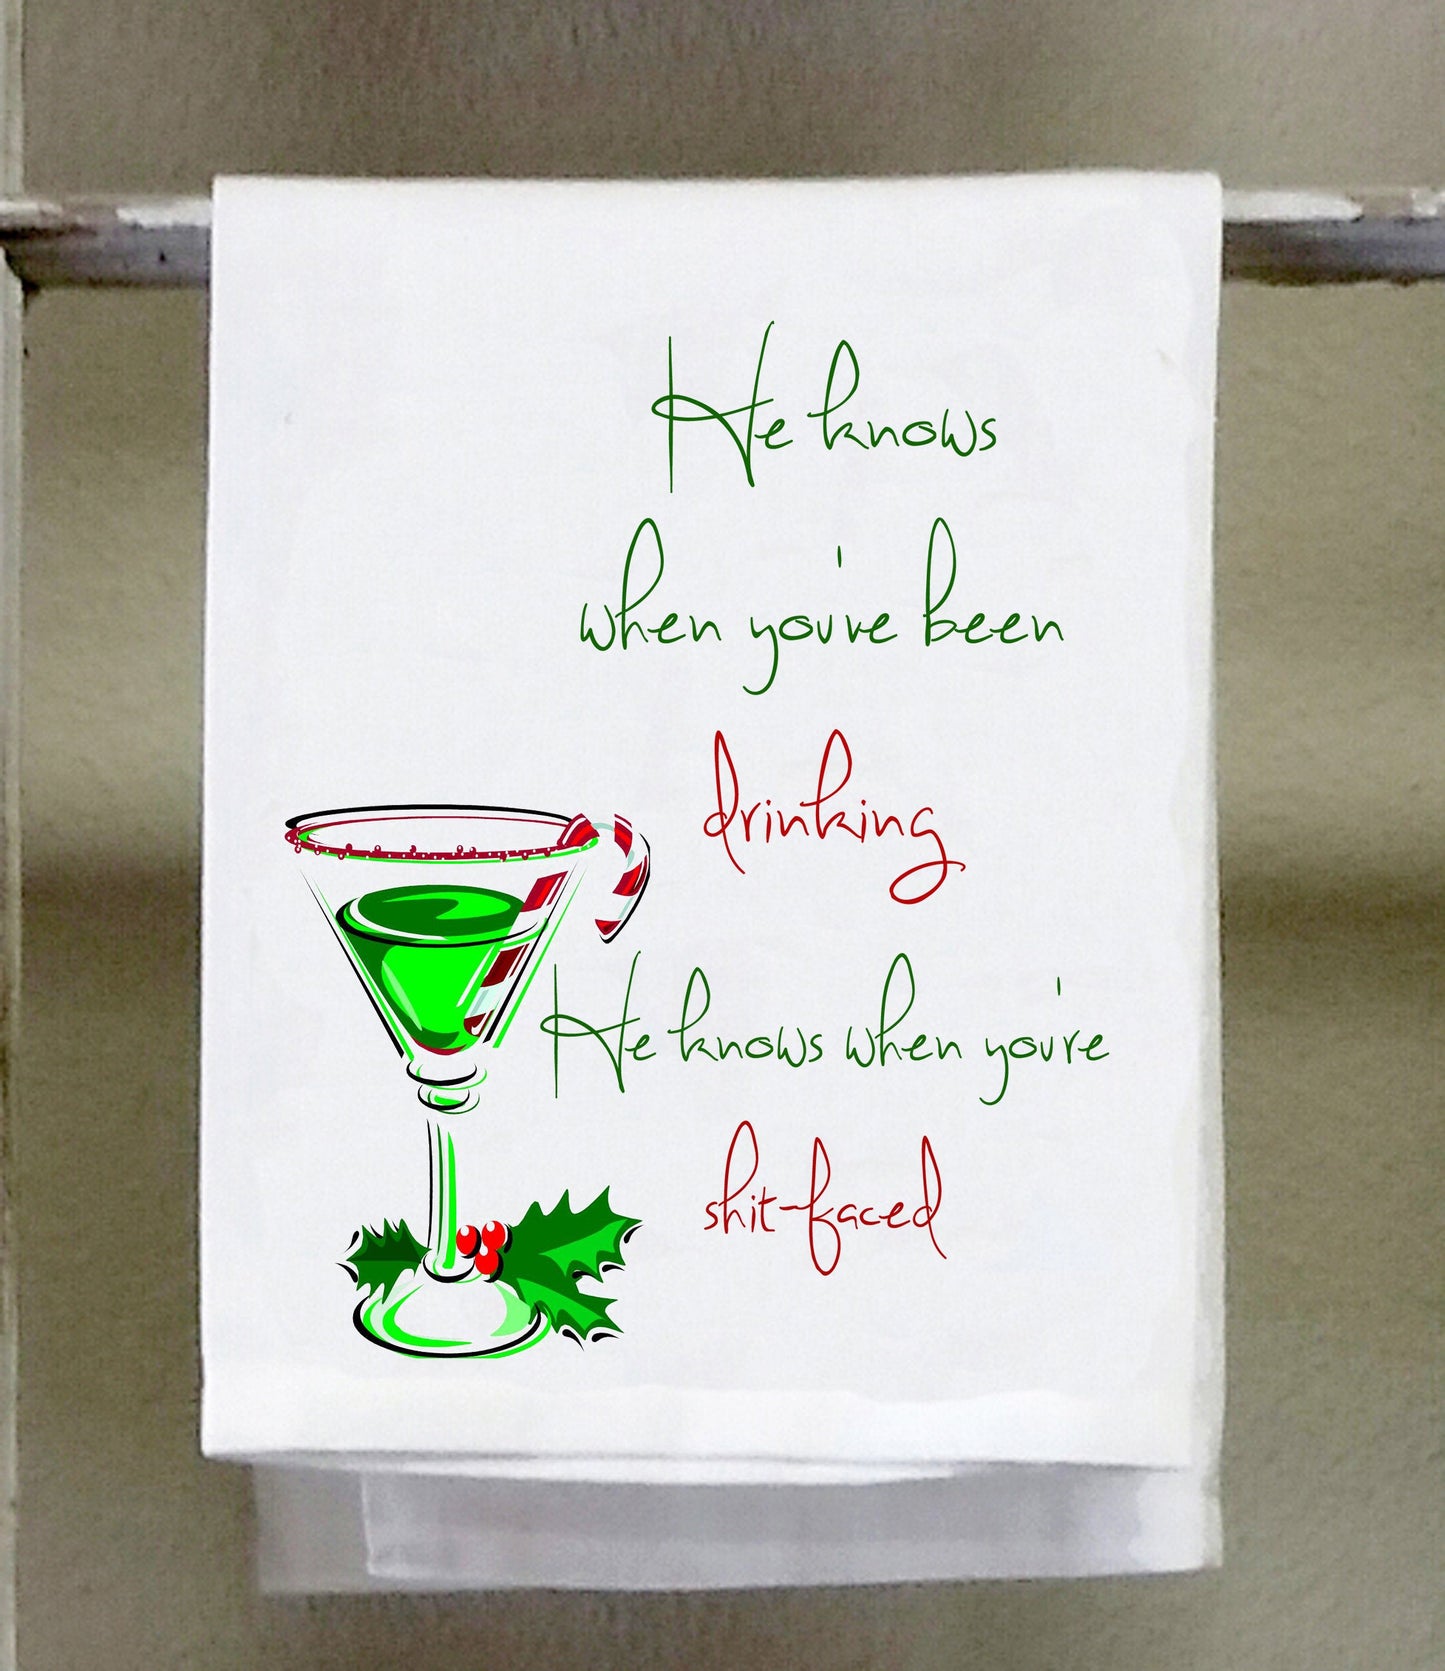 He knows
when you've been
drinking
He knows when you're
shit-faced